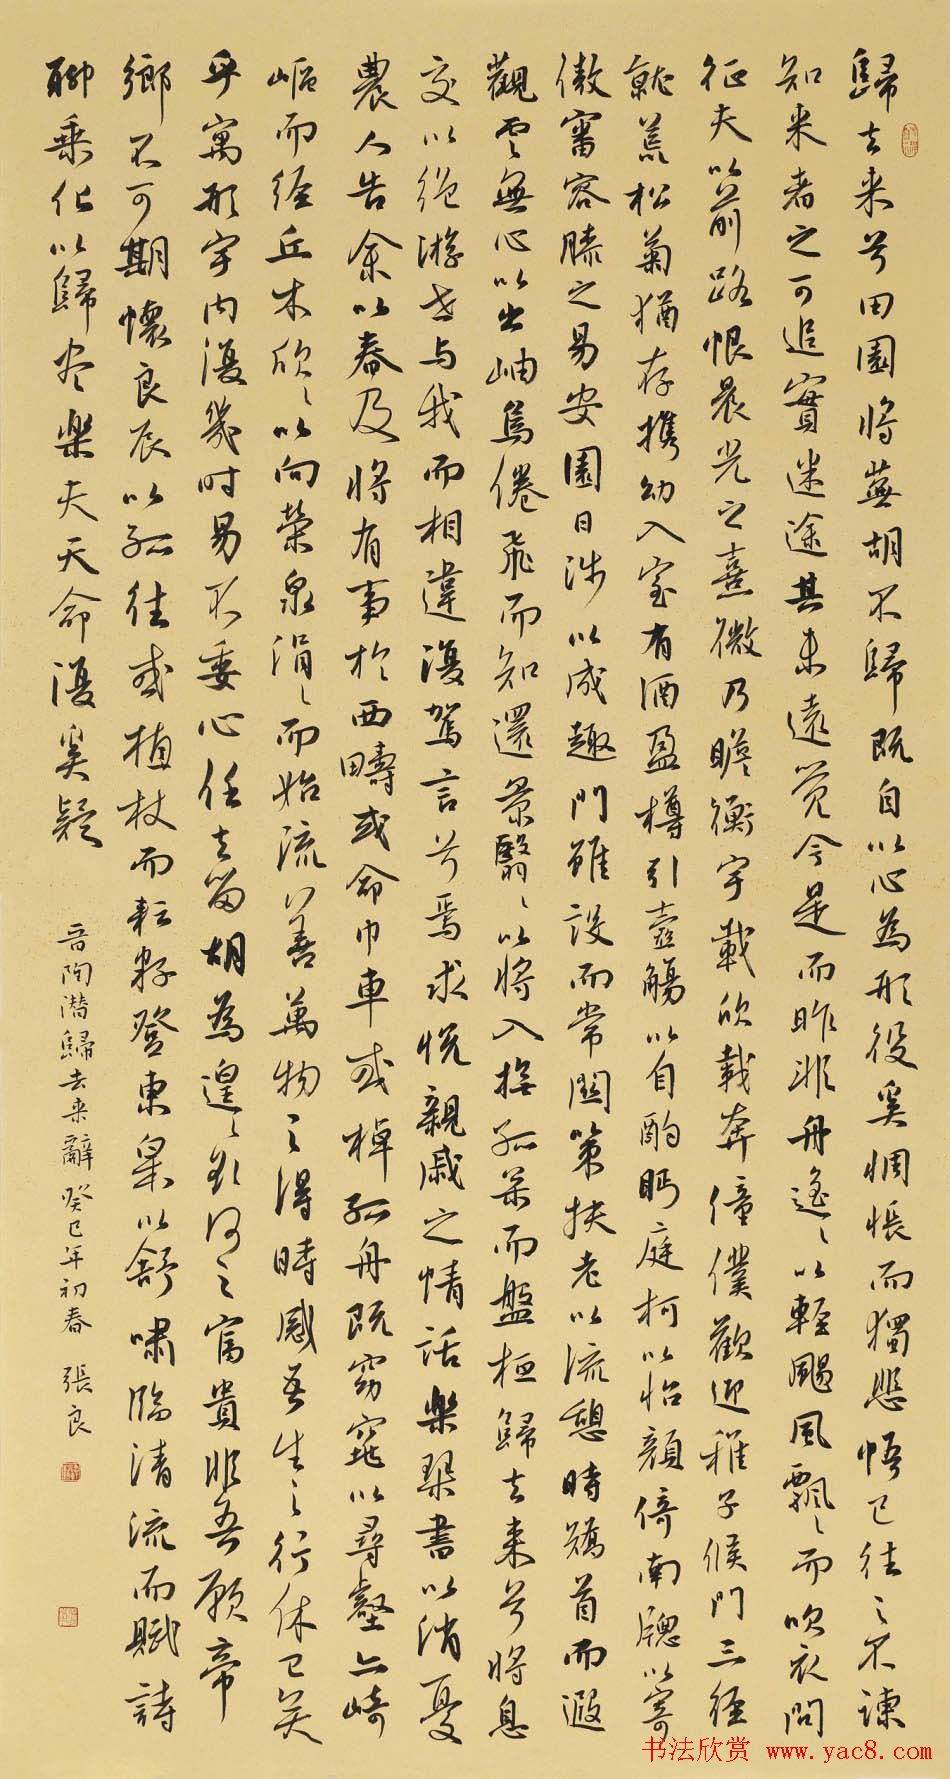 歸去来兮田園将蕪胡不歸既自以心為形役奚惆悵而獨悲悟已往之不諫
知来者之可追實迷途其未遠覚今是而昨非舟遙々以輕颺風飄々而吹衣問
征夫以前路恨晨光之熹微乃瞻衡宇載欣載奔僮僕歡迎稚子候門三径
就荒松菊猶存携幼入室有酒盈樽引壺觴以自酌眄庭柯以怡顏倚南牕以寄
傲審容膝之易安園日涉以成趣門雖設而常關策扶老以流憩時矯首而遐
觀雲無心以出岫鳥倦飛而知還景翳々以将入撫孤松而盤桓歸去来兮将息
交以絕游世与我而相違復駕言兮焉求悅親戚之情話樂琴書以消憂
農人告余以春及将有事於西疇或命巾車或棹孤舟既窈窕以尋壑亦崎
嶇而經丘木欣々以向榮泉涓々而始流善萬物之得時感吾生之行休已矣
乎寓形宇内復幾时曷不委心任去留胡為遑々欲何之富貴非吾願帝
鄉不可期懷良辰以孤往或植杖而耘耔登東皋以舒嘯臨清流而賦詩
聊乘化以歸尽樂夫天命復奚疑
晋陶潜歸去来辭癸巳年初春 張良
书法欣赏 www.yac8.com